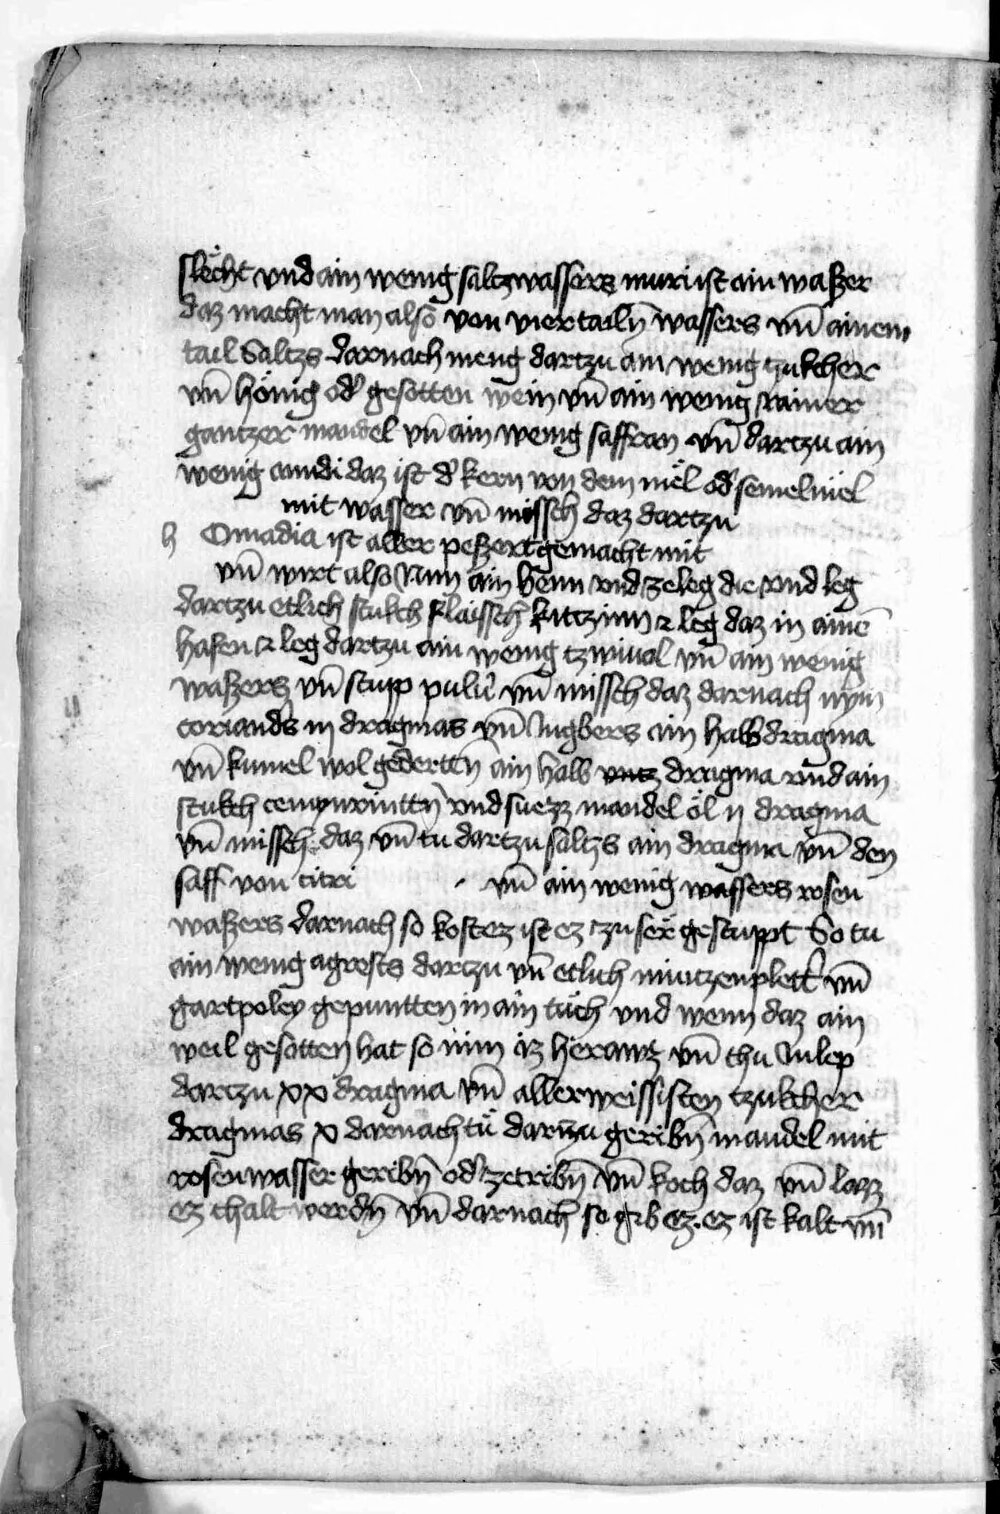 slëcht vnd ain wenig saltzwassers muri ist ain waßer
daz macht man also von vier tailn̄ wassers vn̄ ainem
tail Saltzs darnach meng dartzu ain wenig tzukcher
vn̄ hönig od' gesotten wein vn̄ ain wenig rainer
gantzer mandel vn̄ ain wenig saffran vn̄ dartzu ain
wenig amidi daz ist d' kern von dem mël od' semelmel
mit wasser vn̄ missch daz dartzu
h Omadia ist aller peßzert gemacht mit
vn̄ wirt also Nim ain henn vnd zeleg die vnd leg
dartzu etlich stukch flaissch kitzinn & leg daz in ainē
hafen & leg dartzu ain wenig tzwiuol vn̄ ain wenig
waßers vn̄ stupp puluˀ vn̄ missch daz darnach nym
coriand's iij dragmas vn̄ Ingbers ain halb dragma
vn̄ kumel wol gederttn̄ ain halb vntz dragma vnd ain
stukch cemynrinttn̄ vnd suezz mandel öl ij dragma
vn̄ missch daz vn̄ tu dartzu saltzs ain dragma vn̄ den
saff von citri vn̄ ain wenig wassers rosen
waßers darnach so kost ez ist ez tzu ser gestuppt So tu
ain wenig agrests dartzu vn̄ etlich mintzenplett' vn̄
gartpoley gepuntten in ain tuch vnd wenn daz ain
weil gesotten hat so nim iz herawz vn̄ thu Iulep
dartzu xx dragma vn̄ allerweissisten tzukcher
dragmas x darnach tu dartzu geribn̄ mandel mit
rosenwasser geribn̄ od' zetribn̄ vn̄ koch daz vn̄ lazz
ez chalt werdn̄ vn̄ darnach so gib ez. ez ist kalt vn̄